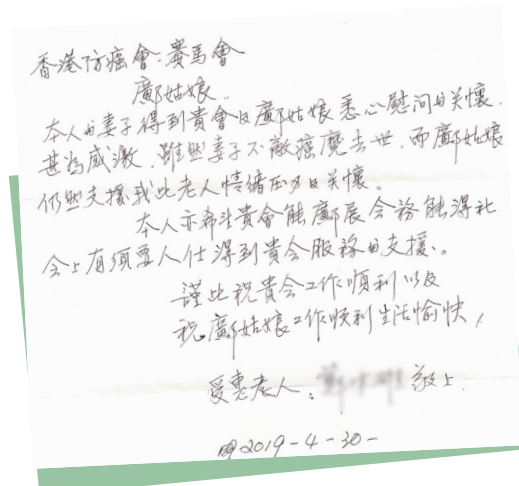 香港防癌會:賽馬會
鄺姑娘..
本人的妻子得到貴會及鄺姑娘悉心慰问的关懷.
甚為感激.雖然妻子不敵癌魔去世.而鄺姑娘
仍然支援我此老人情緒压力的关懷。
本人亦希望貴會能廣展会務能得社
会上有須要人仕得到貴会服務的支援、。
謹此祝貴会工作順利以及
祝.鄺姑娘工作順利生活愉快!
受惠老人: 敬上.
2019-4-30-